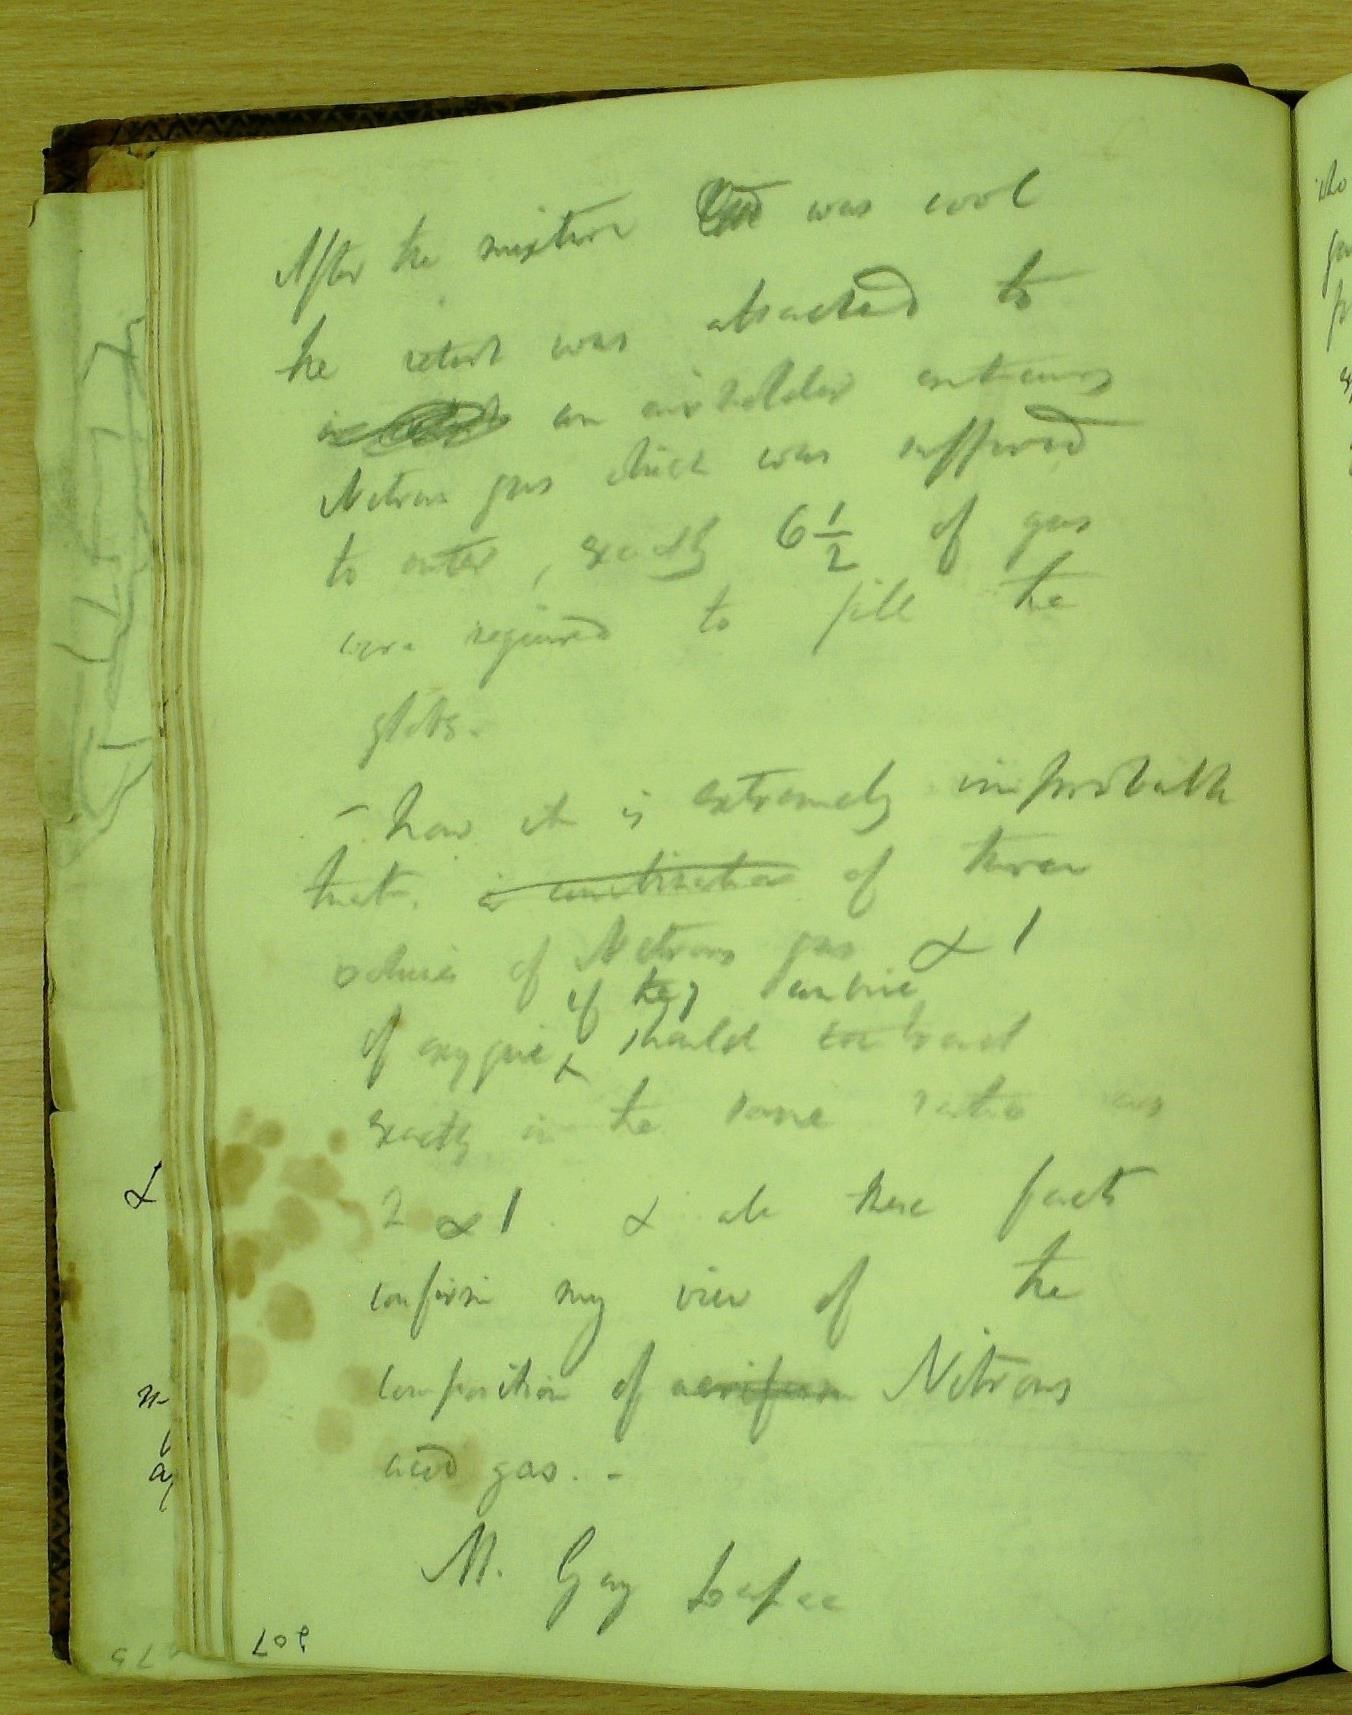 After the mixture was cool
the retort was attached to
an airholder containing
Nitrous gas which was suffered
to enter, exactly 6 1/2 of gas
were required to fill the
globe.
- Now it is extremely improbable
that a combination of three
volumes of Nitrous gas & 1
if they combine
of oxygene should contract
exactly in the same ratio as
2 & 1. & all these facts
confirm my view of the
composition of aeriform Nitrous
acid gas. -
M. Gay Lussac
207